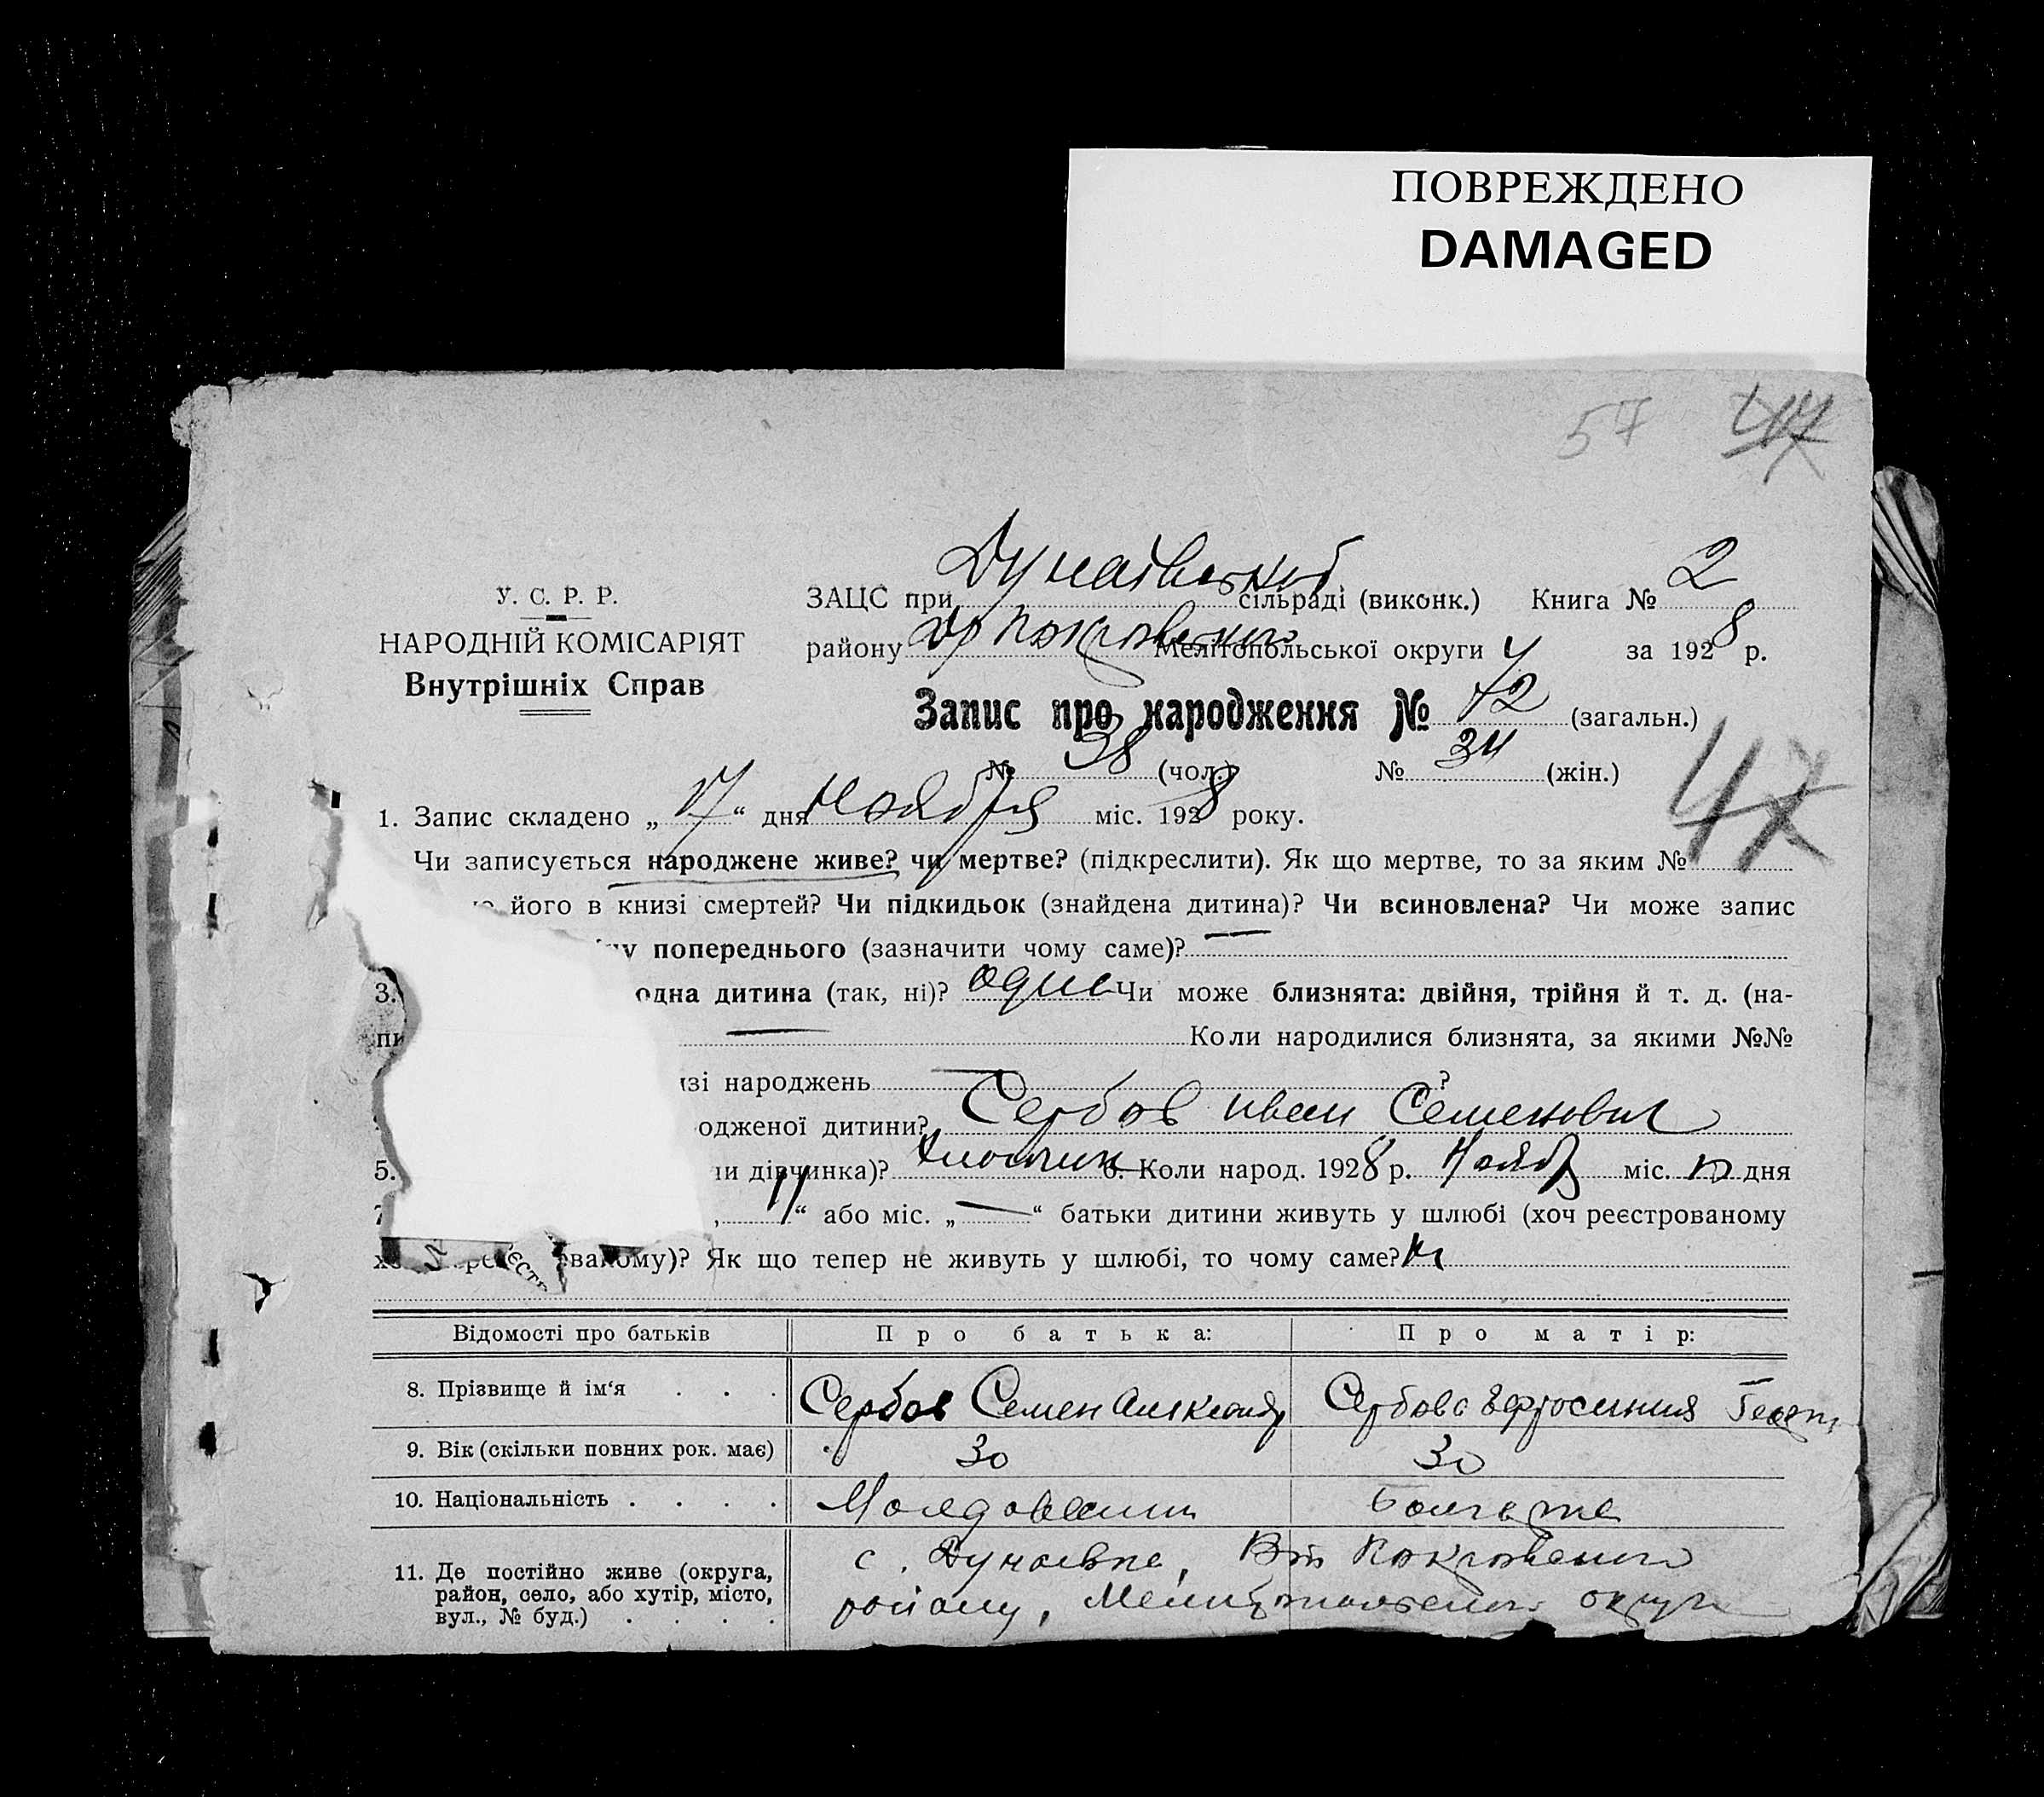 ПОВРЕЖДЕНО
DAMAGED
57
У. С. Р. Р.
НАРОДНІЙ КОМІСАРІЯТ
Внутрішніх Справ
ЗАЦС при сільраді (виконк.) Книга № 2
району Мелітопольської округи за 1928 р.
Запис про народження № 72 (загальн.)
№ 38 (чол.) № 34 (жін.)
47
1. Запис складено „17“ дня Ноября міс. 1928 року.
Чи записується народжене живе? чи мертве? (підкреслити). Як що мертве, то за яким №
його в книзі смертей? Чи підкидьок (знайдена дитина)? Чи всиновлена? Чи може запис
попереднього (зазначити чому саме)? —
3. одна дитина (так, ні)? Чи може близнята: двійня, трійня й т. д. (на-
пи — Коли народилися близнята, за якими №№
зі народжень — ?
одженої дитини? Сербов Иван Семенович
5. чи дівчинка)? 6. Коли народ. 1928 р. Нояб міс. дня
„11“ або міс. „—“ батьки дитини живуть у шлюбі (хоч реєстрованому
ваному)? Як що тепер не живуть у шлюбі, то чому саме?
Відомості про батьків Про батька: Про матір:
8. Прізвище й ім‘я . . . Сербов Семен Сербова Ефросиния
9. Вік (скільки повних рок. має) 30 30
10. Національність . . . .
11. Де постійно живе (округа, район, село, або хутір, місто, вул., № буд.) . . . . с. Дунаевка,
району, округи